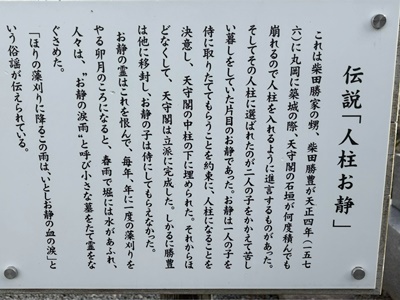 伝説「人柱お静」
これは柴田勝家の甥、柴田勝豊が天正四年(一五七
六)に丸岡に築城の際、天守閣の石垣が何度積んでも
崩れるので人柱を入れるように進言するものがあった。
そしてその人柱に選ばれたのが二人の子をかかえて苦し
い暮しをしていた片目のお静であった。お静は一人の子を
侍に取りたててもらうことを約束に、人柱になることを
決意し、天守閣の中柱の下に埋められた。それからほ
どなくして、天守閣は立派に完成した。しかるに勝豊
は他に移封し、お静の子は侍にしてもらえなかった。
お静の霊はこれを恨んで、毎年、年に一度の藻刈りを
やる卯月のころになると、春雨で堀には水があふれ、
人々は、〝お静の涙雨〟と呼び小さな墓をたて霊をな
ぐさめた。
「ほりの藻刈りに降るこの雨は、いとしお静の血の涙」と
いう俗謡が伝えられている。